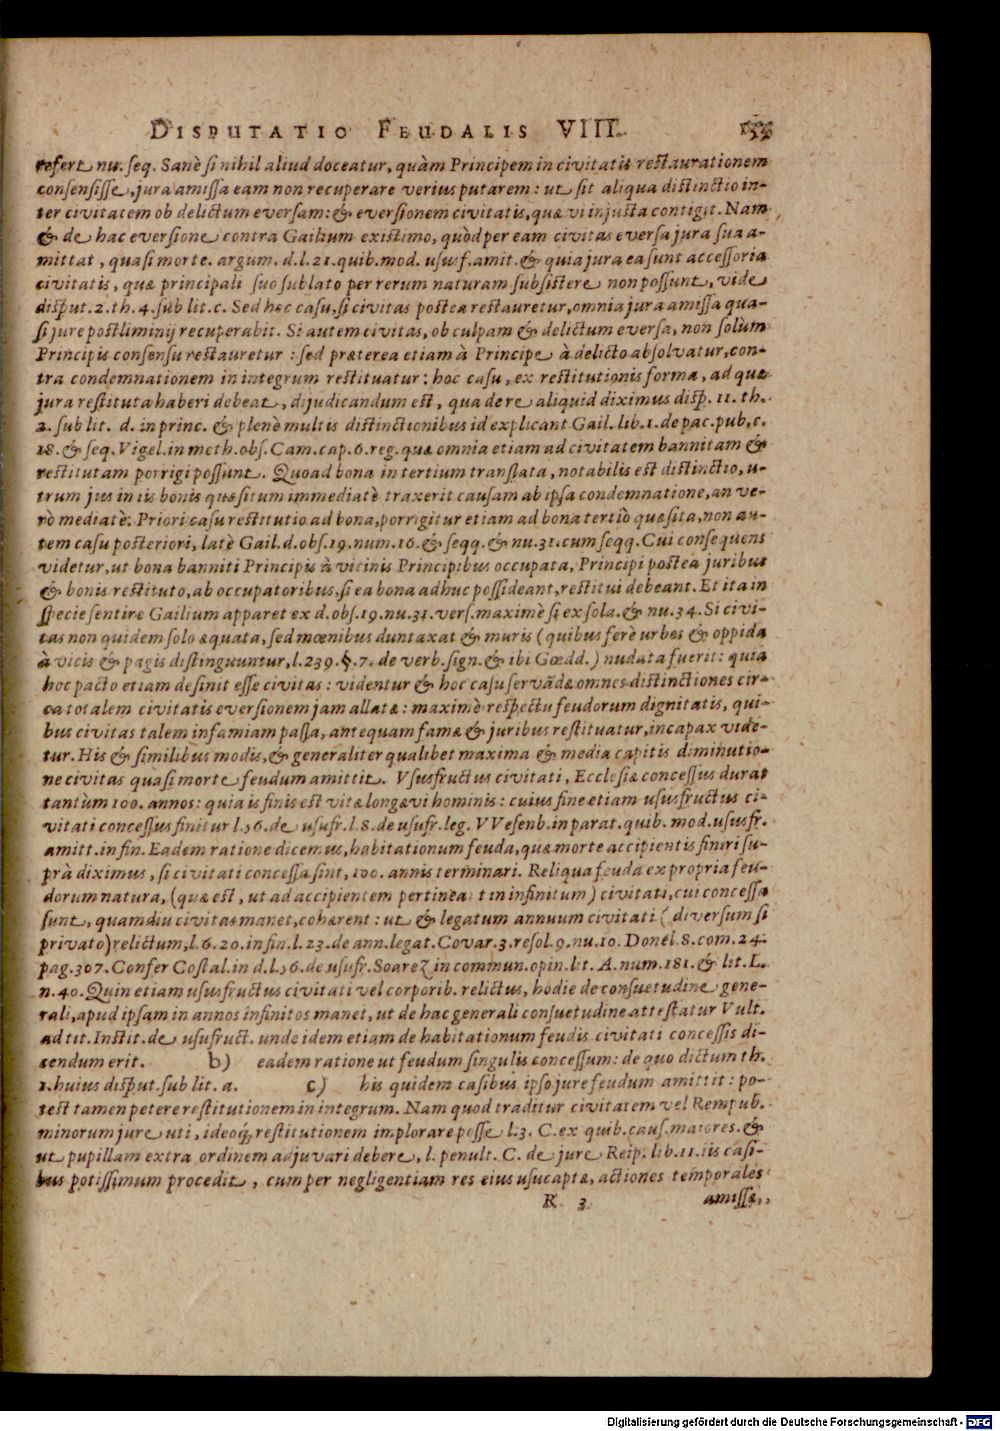 DISPUTATIO FEUDALIS VIII. 133
refert nu. seq. Sanè si nihil aliud doceatur, quàm Principem in civitatis restaurationem
consensisse, jura amissa eam non recuperare verius putarem: ut sit aliqua distinctio in-
ter civitatem ob delictum eversam: & eversionem civitatis, quæ vi injusta contigit. Nam
& de hac eversione contra Gailium existimo, quòd per eam civitas eversa jura sua a-
mittat, quasi morte. argum. d.l.21. quib. mod. ususf. amit. & quia jura ea sunt accessoria
civitatis, quæ principali suo sublato per rerum naturam subsistere non possunt, vide
disput. 2. th. 4. sub lit. c. Sed hoc casu, si civitas postea restauretur, omnia jura amissa qua-
si jure postliminij recuperabit. Si autem civitas, ob culpam & delictum eversa, non solùm
Principis consensu restauretur: sed præterea etiam à Principe à delicto absolvatur, con-
tra condemnationem in integrum restituatur: hoc casu, ex restitutionis forma, ad quæ
jura restituta haberi debeat, dijudicandum est, qua de re aliquid diximus disp. 11. th.
2. sub lit. d. in princ. & plenè multis distinctionibus id explicant Gail. lib. 1. de pac. pub. c.
18. & seq. Vigel. in meth. obs. Cam. cap. 6. reg. quæ omnia etiam ad civitatem bannitam &
restitutam porrigi possunt. Quoad bona in tertium translata, notabilis est distinctio, u-
trum jus in iis bonis quæsitum immediatè traxerit causam ab ipsa condemnatione, an ve-
rò mediatè. Priori casu restitutio ad bona, porrigitur etiam ad bona tertio quæsita, non au-
tem casu posteriori, latè Gail. d. obs. 19. num. 16. & seqq. & nu. 31. cum seqq. Cui consequens
videtur, ut bona banniti Principis à vicinis Principibus occupata, Principi postea juribus
& bonis restituto, ab occupatoribus, si ea bona adhuc possideant, restitui debeant. Et ita in
specie sentire Gailium apparet ex d. obs. 19. nu. 31. vers. maximè si ex sola. & nu. 34. Si civi-
tas non quidem solo æquata, sed mœnibus duntaxat & muris (quibus ferè urbes & oppida
à vicis & pagis distinguuntur, l. 239. §. 7. de verb. sign. & ibi Gœdd.) nudata fuerit: quia
hoc pacto etiam desinit esse civitas: videntur & hoc casu servãdæ omnes distinctiones cir-
ca totalem civitatis eversionem jam allatæ: maximè respectu feudorum dignitatis, qui-
bus civitas talem infamiam passa, antequam famæ & juribus restituatur, incapax vide-
tur. His & similibus modis, & generaliter qualibet maxima & media capitis diminutio-
ne civitas quasi morte feudum amittit. Vsusfructus civitati, Ecclesiæ concessus durat
tantùm 100. annos: quia is finis est vitæ longævi hominis: cuius fine etiam ususfructus ci-
vitati concessus finitur l. 56. de usufr. l. 8. de usufr. leg. VVesenb. in parat. quib. mod. ususfr.
amitt. in fin. Eadem ratione dicemus, habitationum feuda, quæ morte accipientis finiri su-
prà diximus, si civitati concessa sint, 100. annis terminari. Reliqua feuda ex propria feu-
dorum natura, (quæ est, ut ad accipientem pertineat in infinitum) civitati, cui concessa
sunt, quamdiu civitas manet, cohærent: ut & legatum annuum civitati (diversum si
privato) relictum, l. 6. 20. in fin. l. 23. de ann. legat. Covar. 3. resol. 9. nu. 10. Donel. 8. com. 24.
pag. 307. Confer Costal. in d. l. 56. de usufr. Soarez in commun. opin. lit. A. num. 181. & lit. L.
n. 40. Quin etiam ususfructus civitati vel corporib. relictus, hodie de consuetudine gene-
rali, apud ipsam in annos infinitos manet, ut de hac generali consuetudine attestatur Vult.
ad tit. Instit. de usufruct. unde idem etiam de habitationum feudis civitati concessis di-
cendum erit. b) eadem ratione ut feudum singulis concessum: de quo dictum th.
1. huius disput. sub lit. a. c) his quidem casibus ipso jure feudum amittit: po-
test tamen petere restitutionem in integrum. Nam quod traditur civitatem vel Rempub.
minorum jure uti, ideoq; restitutionem implorare posse l. 3. C. ex quib. caus. maiores. &
ut pupillam extra ordinem adjuvari debere, l. penult. C. de jure Reip. lib. 11. iis casi-
bus potissimum procedit, cum per negligentiam res eius usucaptæ, actiones temporales
R 3 amissæ,
Digitalisierung gefördert durch die Deutsche Forschungsgemeinschaft - DFG